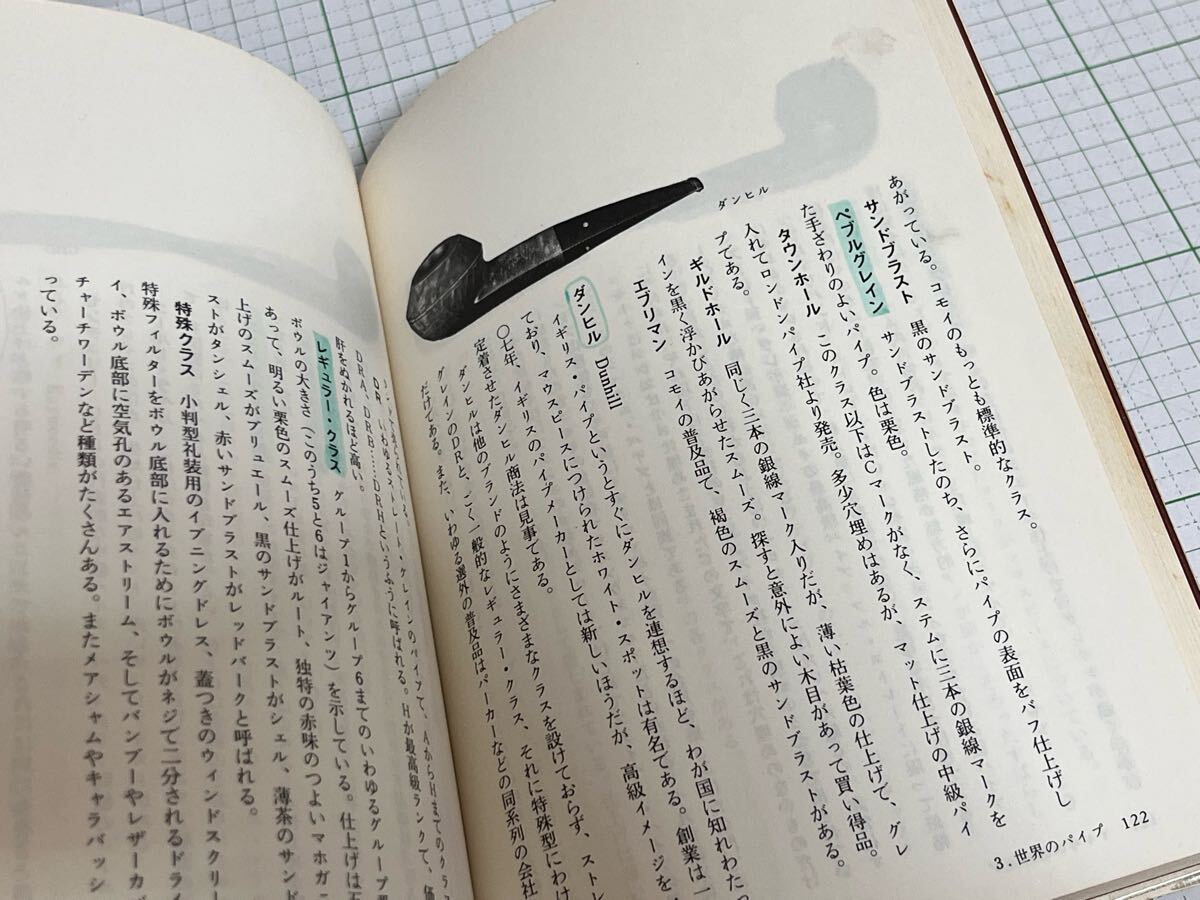 あがっている。コモイのもっとも標準的なクラス。
サンドブラスト 黒のサンドブラスト。
ペブルグレイン サンドブラストしたのち、さらにパイプの表面をバフ仕上げし
た手ざわりのよいパイプ。色は栗色。
タウンホール このクラス以下はCマークがなく、ステムに三本の銀線マークを
入れてロンドンパイプ社より発売。多少穴埋めはあるが、マット仕上げの中級パイ
プである。
ギルドホール 同じく三本の銀線マーク入りだが、薄い枯葉色の仕上げで、グレ
インを黒く浮かびあがらせたスムーズ。探すと意外によい木目があって買い得品。
エブリマン コモイの普及品で、褐色のスムーズと黒のサンドブラストがある。
ダンヒル
ダンヒル Dunhill
イギリス・パイプというとすぐにダンヒルを連想するほど、わが国に知れわたっ
ており、マウスピースにつけられたホワイト・スポットは有名である。創業は一
〇七年、イギリスのパイプメーカーとしては新しいほうだが、高級イメージを
定着させたダンヒル商法は見事である。
ダンヒルは他のブランドのようにさまざまなクラスを設けておらず、ストレ
グレインのDRと、ごく一般的なレギュラー・クラス、それに特殊型にわけ
だけである。また、いわゆる選外の普及品はパーカーなどの同系列の会社
3.世界のパイプ 122
DR いわゆるストレート・グレインのパイプで、AからHまでのラン
DRA、DRB……DRHというふうに呼ばれる。Hが最高級ランクで、価
肝をぬかれるほど高い。
レギュラー・クラス グループ1からグループ6までのいわゆるグループ
ボウルの大きさ(このうち5と6はジャイアンツ)を示している。仕上げは
あって、明るい栗色のスムーズ仕上げがルート、独特の赤味のつよいマホガニ
上げのスムーズがブリュエール、黒のサンドブラストがシェル、薄茶のサンド
ストがタンシェル、赤いサンドブラストがレッドバークと呼ばれる。
特殊クラス 小判型礼装用のイブニングドレス、蓋つきのウィンドスクリー
特殊フィルターをボウル底部に入れるためにボウルがネジで二分されるドラ
イ、ボウル底部に空気孔のあるエアストリーム、そしてバンブーやレザーカバ
チャーチワーデンなど種類がたくさんある。またメアシャムやキャラバッシ
っている。